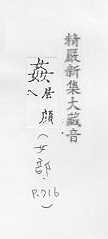 精嚴新集大藏音
姦 居顏
(女部,
P.716
)